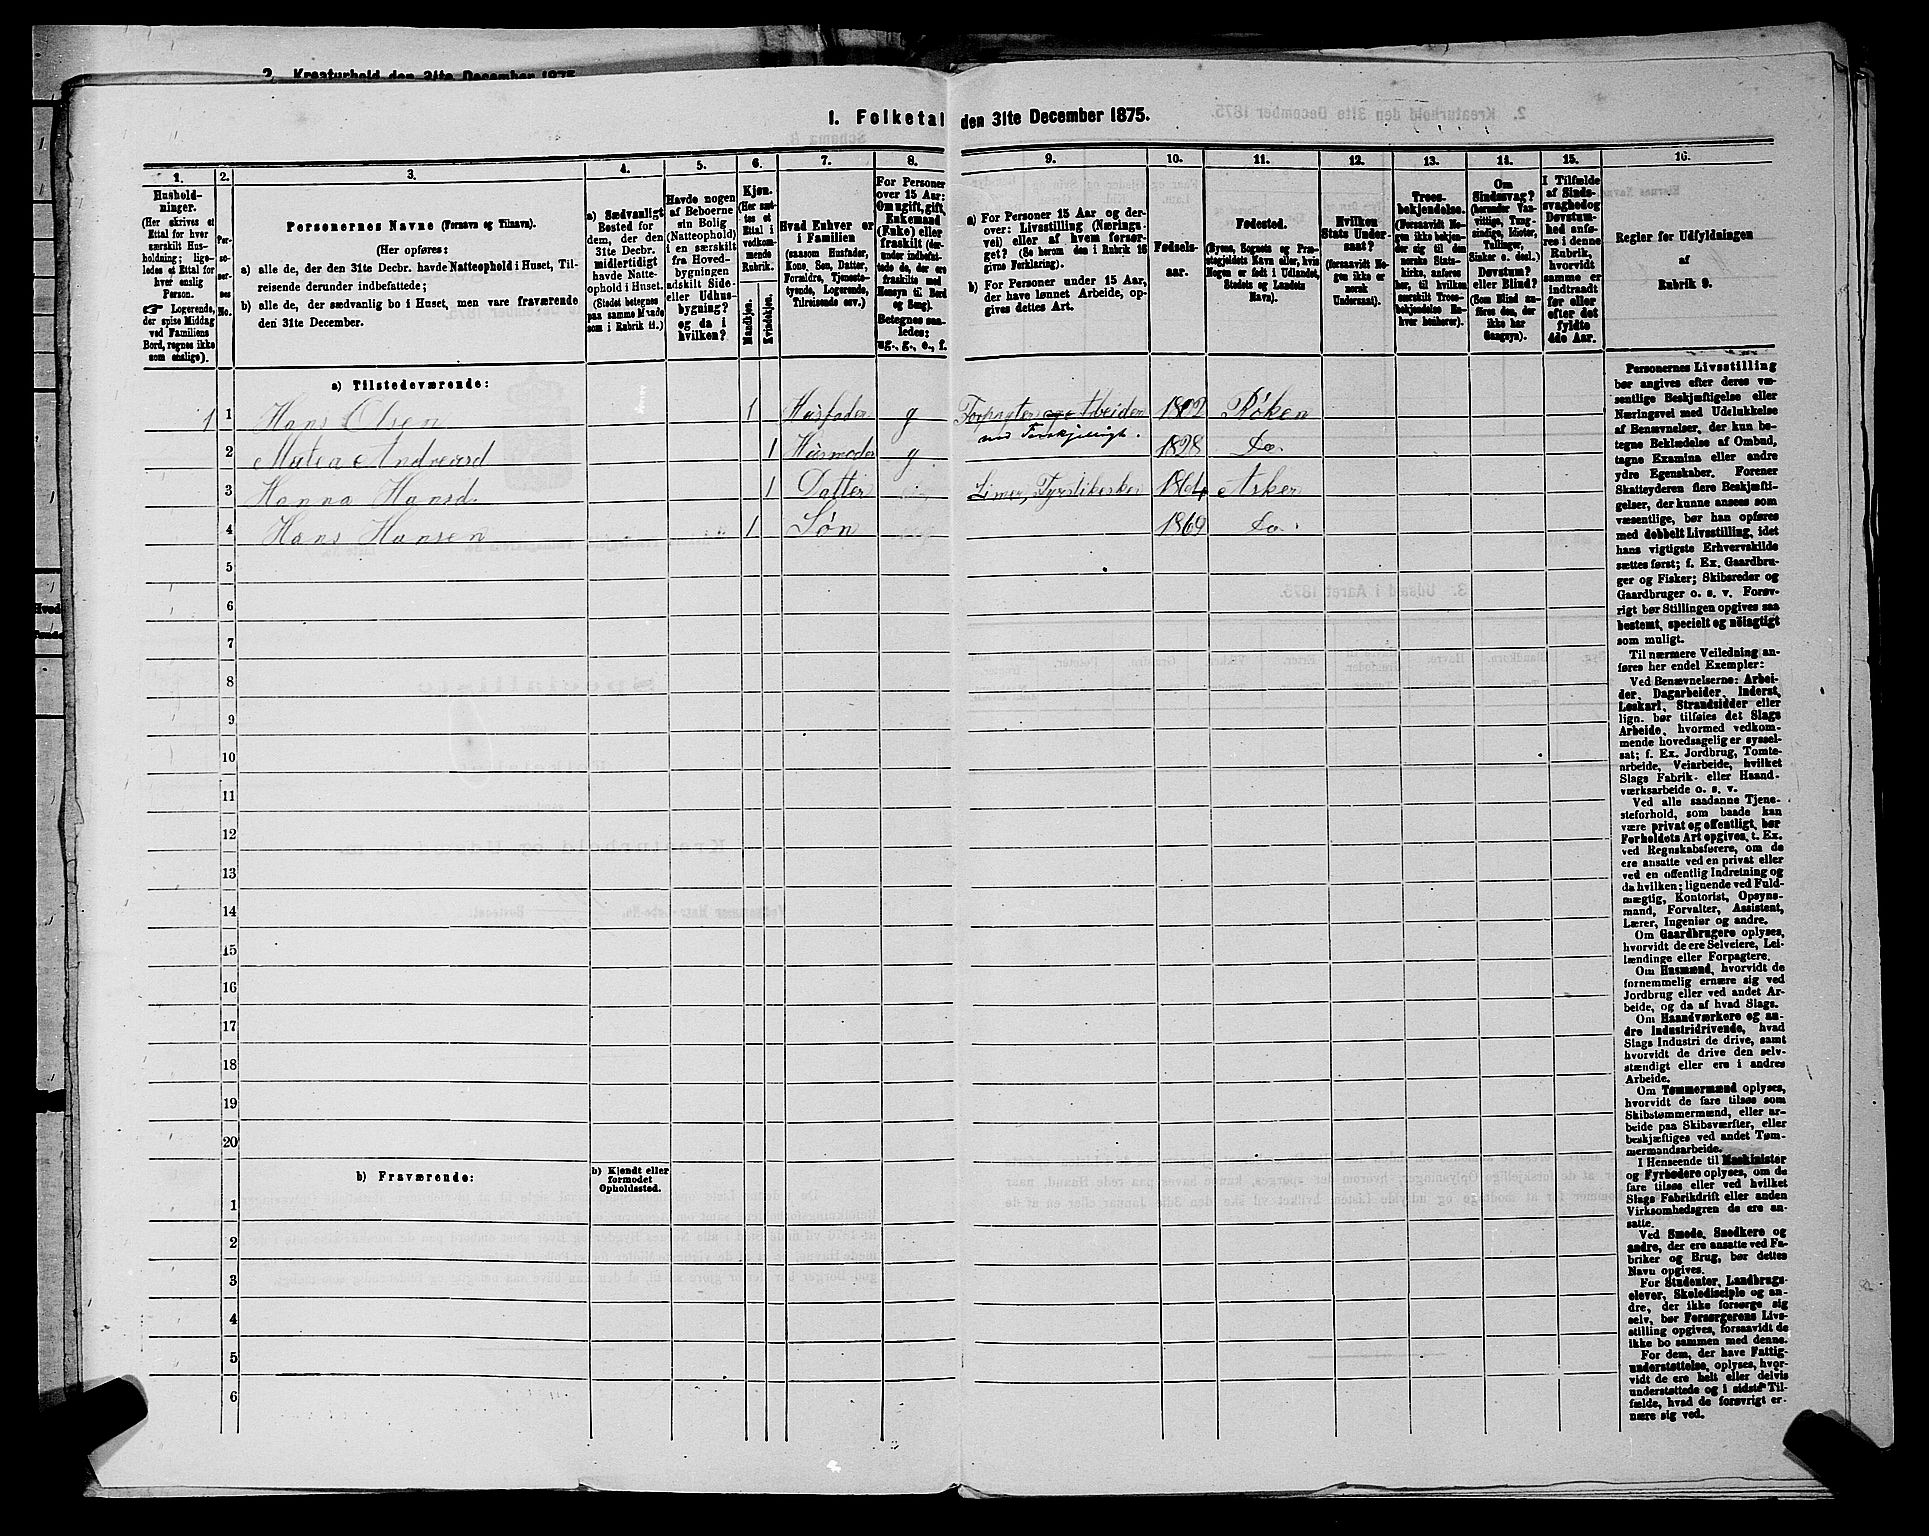 2. Kreaturhold den 31te December 1875
I. Folketal den 31te December 1875.
1.
Hushold-
ninger.
(Her skrives et
Ettal for hver
særskilt Hus-
holdning; lige-
ledes et Ettal for
hver enslig
Person.
Logerende,
der spise Middag
ved Familiens
Bord, regnes ikke
som enslige).
2.
Per-
so-
ner-
nes
No.
3.
Personernes Navne (Fornavn og Tilnavn).
(Her opføres:
a) alle de, der den 31te Decbr. havde Natteophold i Huset, Til-
reisende derunder indbefattede;
b) alle de, der sædvanlig bo i Huset, men vare fraværende
den 31te December.
4.
a) Sædvanligt
Bosted for
dem, der den
31te Decbr.
midlertidigt
havde Natte-
ophold i Huset.
(Stedet betegnes
paa samme Maade
som i Rubrik 11.)
5.
Havde nogen
af Beboerne
sin Bolig
(Natteophold)
i en særskilt
fra Hoved-
bygningen
adskilt Side-
eller Udhus-
bygning?
og da i
hvilken?
6.
Kjøn.
(Her sæt-
tes et
Ettal i
vedkom-
mende
Rubrik.
Mandkjøn.
Kvindekjøn.
7.
Hvad Enhver er
i Familien
(saasom Husfader,
Kone, Søn, Datter,
Forældre, Tjeneste-
tyende, Logerende,
Tilreisende osv.)
8.
For Personer
over 15 Aar:
Om ugift, gift,
Enkemand
(Enke) eller
fraskilt (der-
under indbefat-
tede de, der ere
fraskilte med
Hensyn til Bord
og Seng).
Betegnes saa-
ledes:
ug., g., e., f.
9.
a) For Personer 15 Aar og der-
over: Livsstilling (Nærings-
vei) eller af hvem forsør-
get? (Se herom den i Rubrik 16
givne Forklaring).
b) For Personer under 15 Aar,
der have lønnet Arbeide, op-
gives dettes Art.
10.
Fødsels-
aar.
11.
Fødested.
(Byens, Sognets og Præ-
stegjeldets Navn eller, hvis
Nogen er født i Udlandet,
Stedets og Landets
Navn).
12.
Hvilken
Stats Under-
saat?
(forsaavidt No-
gen ikke er
norsk
Undersaat).
13.
Troes-
bekjendelse.
(Forsaavidt No-
gen ikke bekjen-
der sig til den
norske Stats-
kirke, anføres
her, til hvilken
særskilt Troes-
bekjendelse En-
hver henhører).
14.
Om
Sindssvag?
(herunder Van-
vittige, Tung-
sindige, Idioter,
Tullinger,
Sinker o. desl.)
Døvstum?
eller Blind?
(Som Blind an-
føres den, der
ikke har
Gangsyn).
15.
I Tilfælde
af Sinds-
svaghed og
Døvstum-
hed anfø-
res i denne
Rubrik,
hvorvidt
samme er
indtraadt
før eller
efter det
fyldte
4de Aar.
16.
Regler for Udfyldningen
af
Rubrik 9.
a) Tilstedeværende:
1 1 Hans Olsen 1 Husfader g Forpagter og Arbeider 1822 Røken
ved Forskjelligt.
2 Matea Andreasd 1 Husmoder g 1828 Do.
3 Hanna Hansd. 1 Datter Limer Fyrstikesker 1864 Asker
4 Hans Hansen 1 Søn 1869 Do.
5
6
7
8
9
10
11
12
13
14
15
16
17
18
19
20
b) Fraværende:
b) Kjendt eller
formodet
Opholdssted.
1
2
3
4
5
6
Personernes Livsstilling
bør angives efter deres væ-
sentlige Beskjæftigelse eller
Næringsvei med Udelukkelse
af Benævnelser, der kun be-
tegne Beklædelse af Ombud,
tagne Examina eller andre
ydre Egenskaber. Forener
Skatteyderen flere Beskjæfti-
gelser, der kunne ansees som
væsentlige, bør han opføres
med dobbelt Livsstilling, idet
hans vigtigste Erhvervskilde
sættes først; f. Ex. Gaardbru-
ger og Fisker; Skibsreder og
Gaardbruger o. s. v. Forøv-
rigt bør Stillingen opgives saa
bestemt, specielt og nöiagtigt
som muligt.
Til nærmere Veiledning an-
føres her endel Exempler:
Ved Benævnelserne: Arbei-
der, Dagarbeider, Inderst,
Løskarl, Strandsidder eller
lign. bør tilføies det Slags
Arbeide, hvormed vedkom-
mende hovedsagelig er syssel-
sat; f. Ex. Jordbrug, Tomte-
arbeide, Veiarbeide, hvilket
Slags Fabrik- eller Haand-
værksarbeide o. s. v.
Ved alle saadanne Tjene-
steforhold, som baade kan
være privat og offentligt, bør
Forholdets Art opgives, t. Ex.
ved Regnskabsførere, om de
ere ansatte ved en privat eller
ved en offentlig Indretning og
da hvilken; lignende ved Fuld-
mægtig, Kontorist, Opsyns-
mand, Forvalter, Assistent,
Lærer, Ingeniør og andre.
Om Gaardbrugere oplyses,
hvorvidt de ere Selveiere, Lei-
lændinge eller Forpagtere.
Om Husmænd, hvorvidt de
fornemmelig ernære sig ved
Jordbrug eller ved andet Ar-
beide, og da af hvad Slags.
Om Haandværkere og an-
dre Industridrivende, hvad
Slags Industri de drive, samt
hvorvidt de drive den selv-
stændigt eller ere i andres
Arbeide.
Om Tømmermænd oplyses,
hvorvidt de fare tilsøs som
Skibstømmermænd, eller ar-
beide paa Skibsværfter, eller
beskjæftiges ved andet Tøm-
mermandsarbeide.
I Henseende til Maskinister
og Fyrbødere oplyses, om de
fare tilsøs eller ved hvilket
Slags Fabrikdrift eller anden
Virksomhedsgren de ere an-
satte.
Ved Smede, Snedkere og
andre, der ere ansatte ved Fa-
briker og Brug, bør dettes
Navn opgives.
For Studenter, Landbrugs-
elever, Skoledisciple og an-
dre, der ikke forsørge sig
selv, bør Forsørgerens Livs-
stilling opgives, forsaavidt de
ikke bo sammen med denne.
For dem, der have Fattig-
understøttelse, oplyses, hvor-
vidt de ere helt eller delvis
understøttede og i sidste Til-
fælde, hvad de forøvrigt er-
nære sig ved.